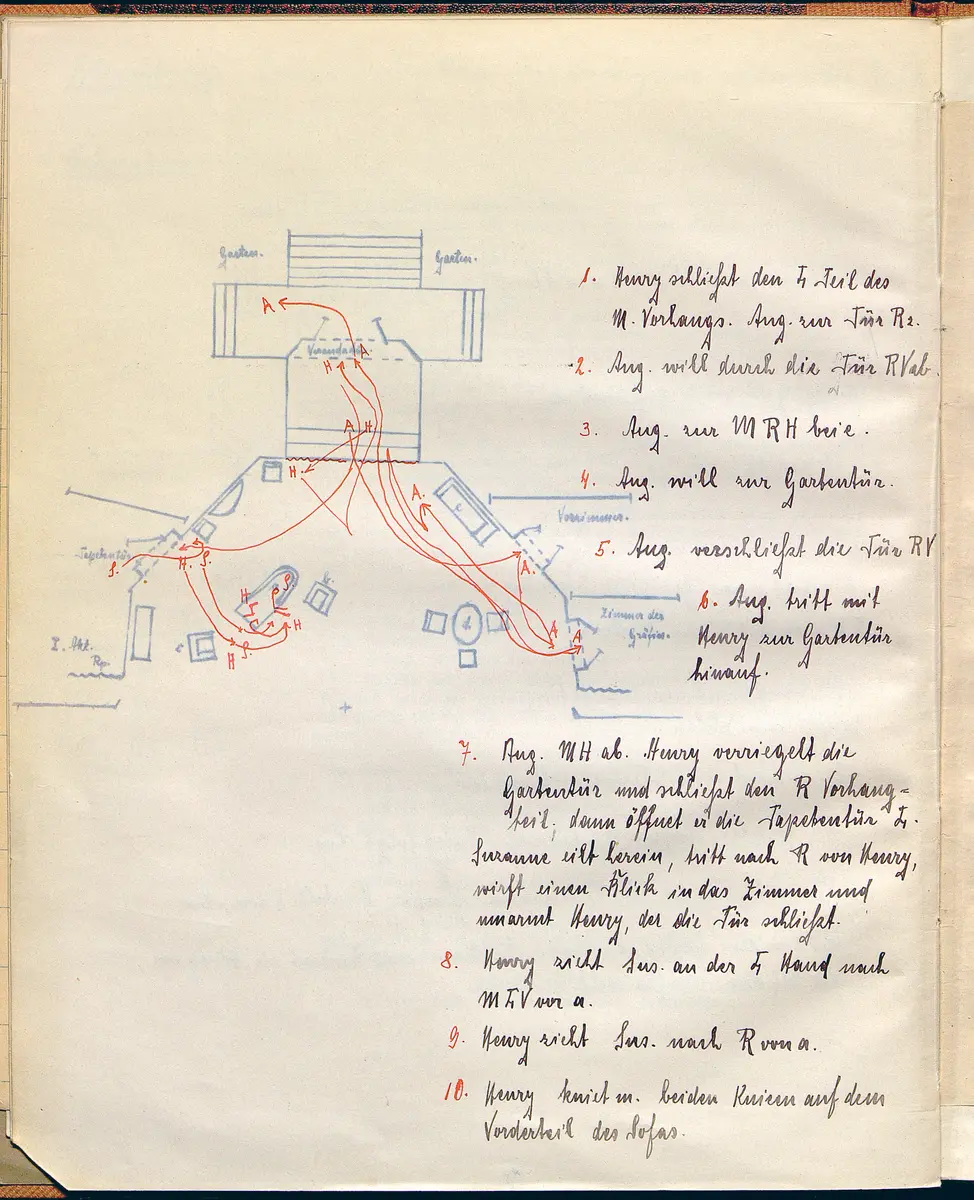 Garten.
Garten.
A
Veranda
H
A
A
H
H.
A.
c
Vorzimmer.
Tapetentür
S.
H.
S.
A.
H
S.
b.
H
Zimmer der
Gräfin.
d.
A
A
I. Akt.
a
H
S.
1. Henry schließt den L Teil des
M. Vorhangs. Aug. zur Tür R2.
2. Aug. will durch die Tür RV ab.
3. Aug. zur MRH beie.
4. Aug. will zur Gartentür.
5. Aug. verschließt die Tür RV
6. Aug. tritt mit
Henry zur Gartentür
hinauf.
7. Aug. MH ab. Henry verriegelt die
Gartentür und schließt den R Vorhang=
teil; dann öffnet er die Tapetentür L.
Suzanne eilt herein, tritt nach R von Henry,
wirft einen Blick in das Zimmer und
umarmt Henry, der die Tür schließt.
8. Henry zieht Sus. an der L Hand nach
MLV vor a.
9. Henry zieht Sus. nach R von a.
10. Henry kniet m. beiden Knieen auf dem
Vorderteil des Sofas.